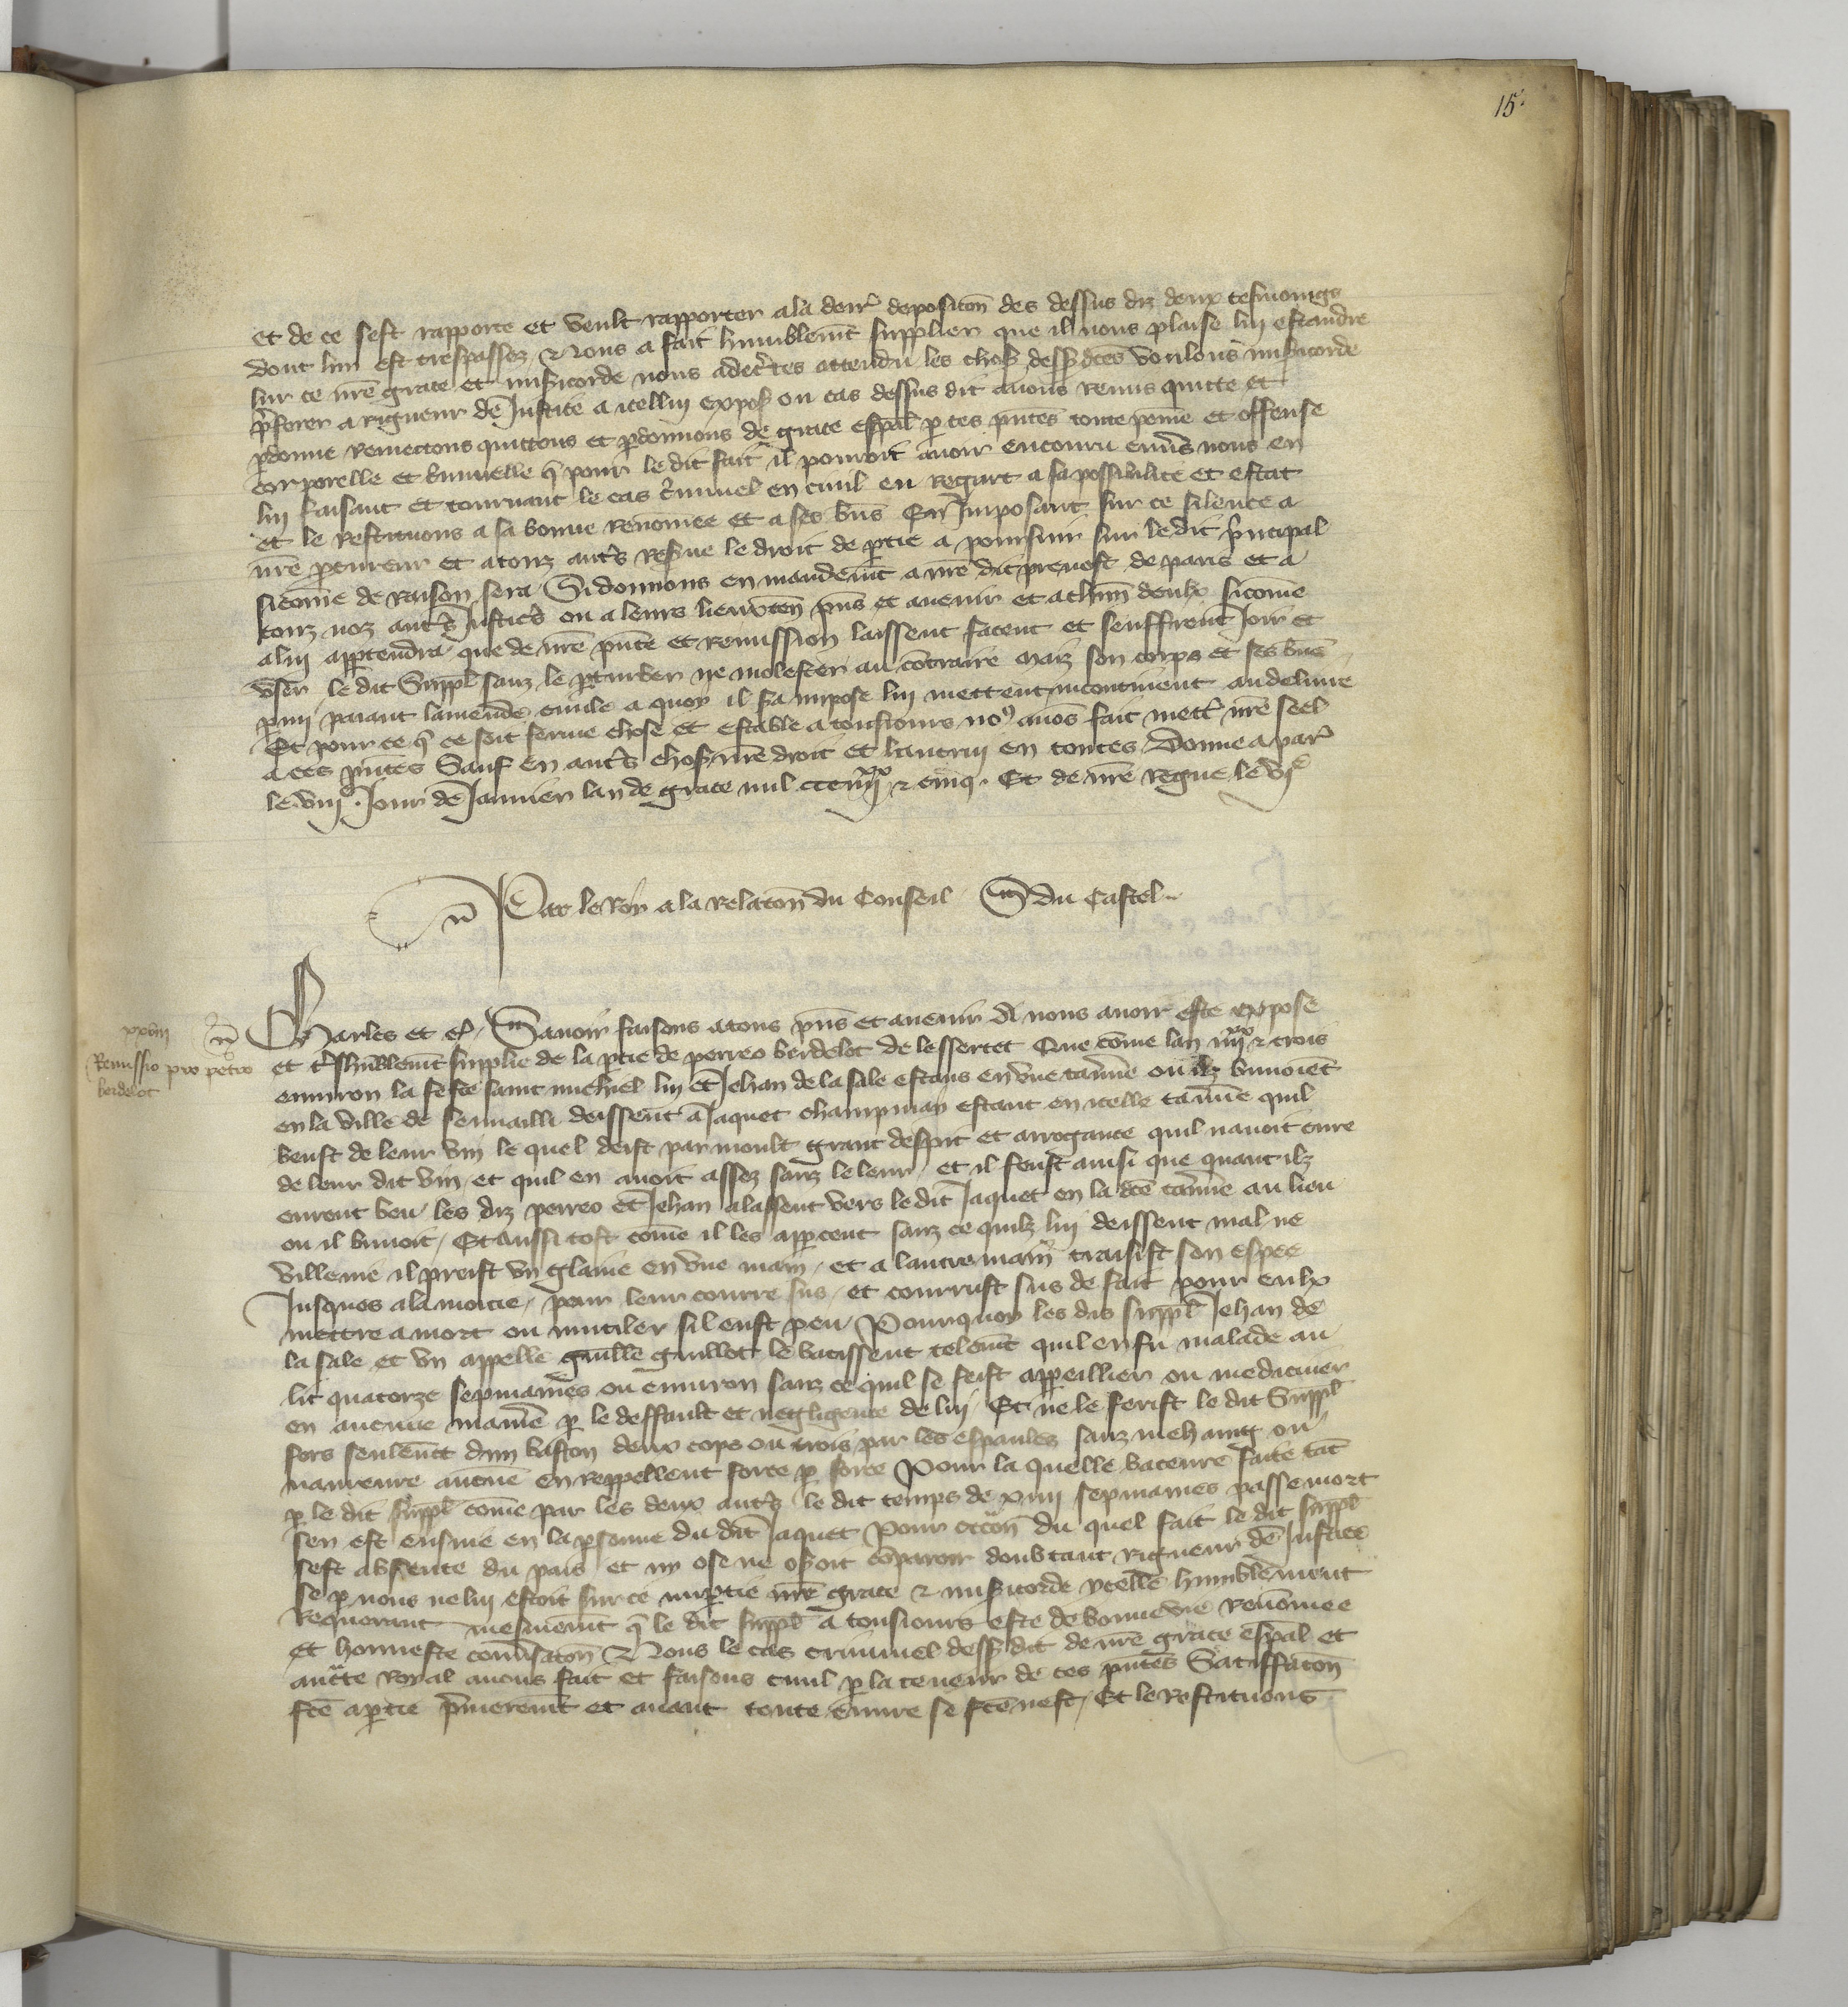 15
et de ce sest rapporte et veult rapporter a la derr̃ deposicõn des dessus diz deux tesmoings
dont lun est trespassez / Et nous a fait humblemẽt supplier que il nous plaise lui estandre
sur ce nr̃e grace et mis̃icorde nous adec̃tes attendu les chos̃ dess̃ dc̃es voulons mis̃icorde
p̃ferer a rigueur de Justice a icellui expos̃ ou cas dessus dit avons remis quitte et
p̱donne Remectons quittons et p̱donnons de grace esp̃al p̱ ces p̃ntes toute peine et offense
corporelle et c̃iminelle q̃ pour le dit fait il pourroit avoir encouru env̾s nous en
lui faisant et tournant le cas c̃iminel en civil eu regart a sa possibilite et estat
et le restituons a sa bonne renõmee et a ses biens En Imposant sur ce silence a
nr̃e p̱cureur et a touz aut̃s res̾ve le droit de p̱tie a poursuir sur le dit p̃ncipal
sicõme de raison sera Si donnons en mandemẽt a nr̃e dit prevost de paris et a
touz noz aut̃s Justic̃s ou a leurs lieuxten̄ p̃ns et avenir et a ch̄un deulx sicõme
a lui app̱tendra que de nr̃e p̃nte et remission laissent facent et seuffrent Joir et
user le dit Suppl̃ sanz le p̱turber ne molester au cõtraire Maiz son corps et ses biens
p̱mi paiant lamende civile a quoy il s̾a impose lui mettent incontinent au delivre
Et pour ce q̃ ce soit ferme chose et estable a tousiours noꝰ avõs fait mett̾ nr̃e seel
a ces p̃ntes Sauf en aut̃s chos̃ nr̃e droit et lautrui en toutes Donne a par̾
le viij.e Jour de Janvier lan de grace mil ccc iiijxx et cinq. Et de nr̃e Regne le vje
Par le Roy a la relacõn du Conseil M du Castel
xxviij
Remissio pro petro
berdelot
Charles et c̃. Savoir faisons a tous p̃ns et avenir A nous avoir este expose
et t̾shũblemẽt supplie de la p̱tie de perreo berdelot de lessertet Que cõme lan iiijxx et trois
environ la feste saint michiel lui et Jehan de la sale estans en une tav̾ne ou ilz buvoient
en la ville de sermailli deissent a Jaquet champman estant en icelle tav̾ne quil
beust de leur vin le quel deist par moult grant despit et arrogance quil navoit cure
de leur dit vin / et quil en avoit assez sanz le leur / et il feust ainsi que quant ilz
eurent beu / les diz perreo et Jehan alassent vers le dit Jaquet en la dc̃e tav̾ne au lieu
ou il buvoit / Et aussi tost cõme il les app̱ceut sanz ce quilz lui deissent mal ne
villenie il preist un glaive en une main / et a lautre main traisist son espee
Jusques a la moitie / pour leur courre sus / et courrust sus de fait pour eulx
mettre a mort ou mutiler sil eust peu / Pourquoy les dis suppl̃ Jehan de
la sale et un appelle guille guillot le batissent telemẽt quil en fu malade au
lit quatorze sepmaines ou environ sanz ce quil se feist appeillier ou mediciner
en aucune maniere p̱ le deffault et negligence de lui / Et ne le ferist le dit Suppl̃
fors seulemẽt dun baston deux cops ou trois par les espaules sanz mehaing ou
navreure aucune en reppellent force p̱ force Pour la quelle bateure faite tãt
p̱ le dit suppl̃ cõme par les deux aut̃s / le dit temps de xiiij sepmaines passe mort
sen est ensuie en la p̱sonne du dit Jaquet Pour occõn du quel fait le dit suppl̃
sest absente du pais et ny ose ne oseroit cõparoir doubtant rigueur de Justice
se p̱ nous ne lui estoit sur ce imp̱tie nr̃e grace et mis̃icorde ycelle humblement
Requerant mesmemẽt q̃ le dit suppl̃ a tousiours este de bonne vie renõmee
et honneste conv̾sacõn Et Nous le cas criminel dess̃ dit de nr̃e grace esp̃al et
auct̃e Royal avons fait et faisons civil p̱ la teneur de ces p̃ntes Satiffacõn
fc̃e a p̱tie p̃mieremẽt et avant toute euvre se fc̃e nest / Et le Restituons